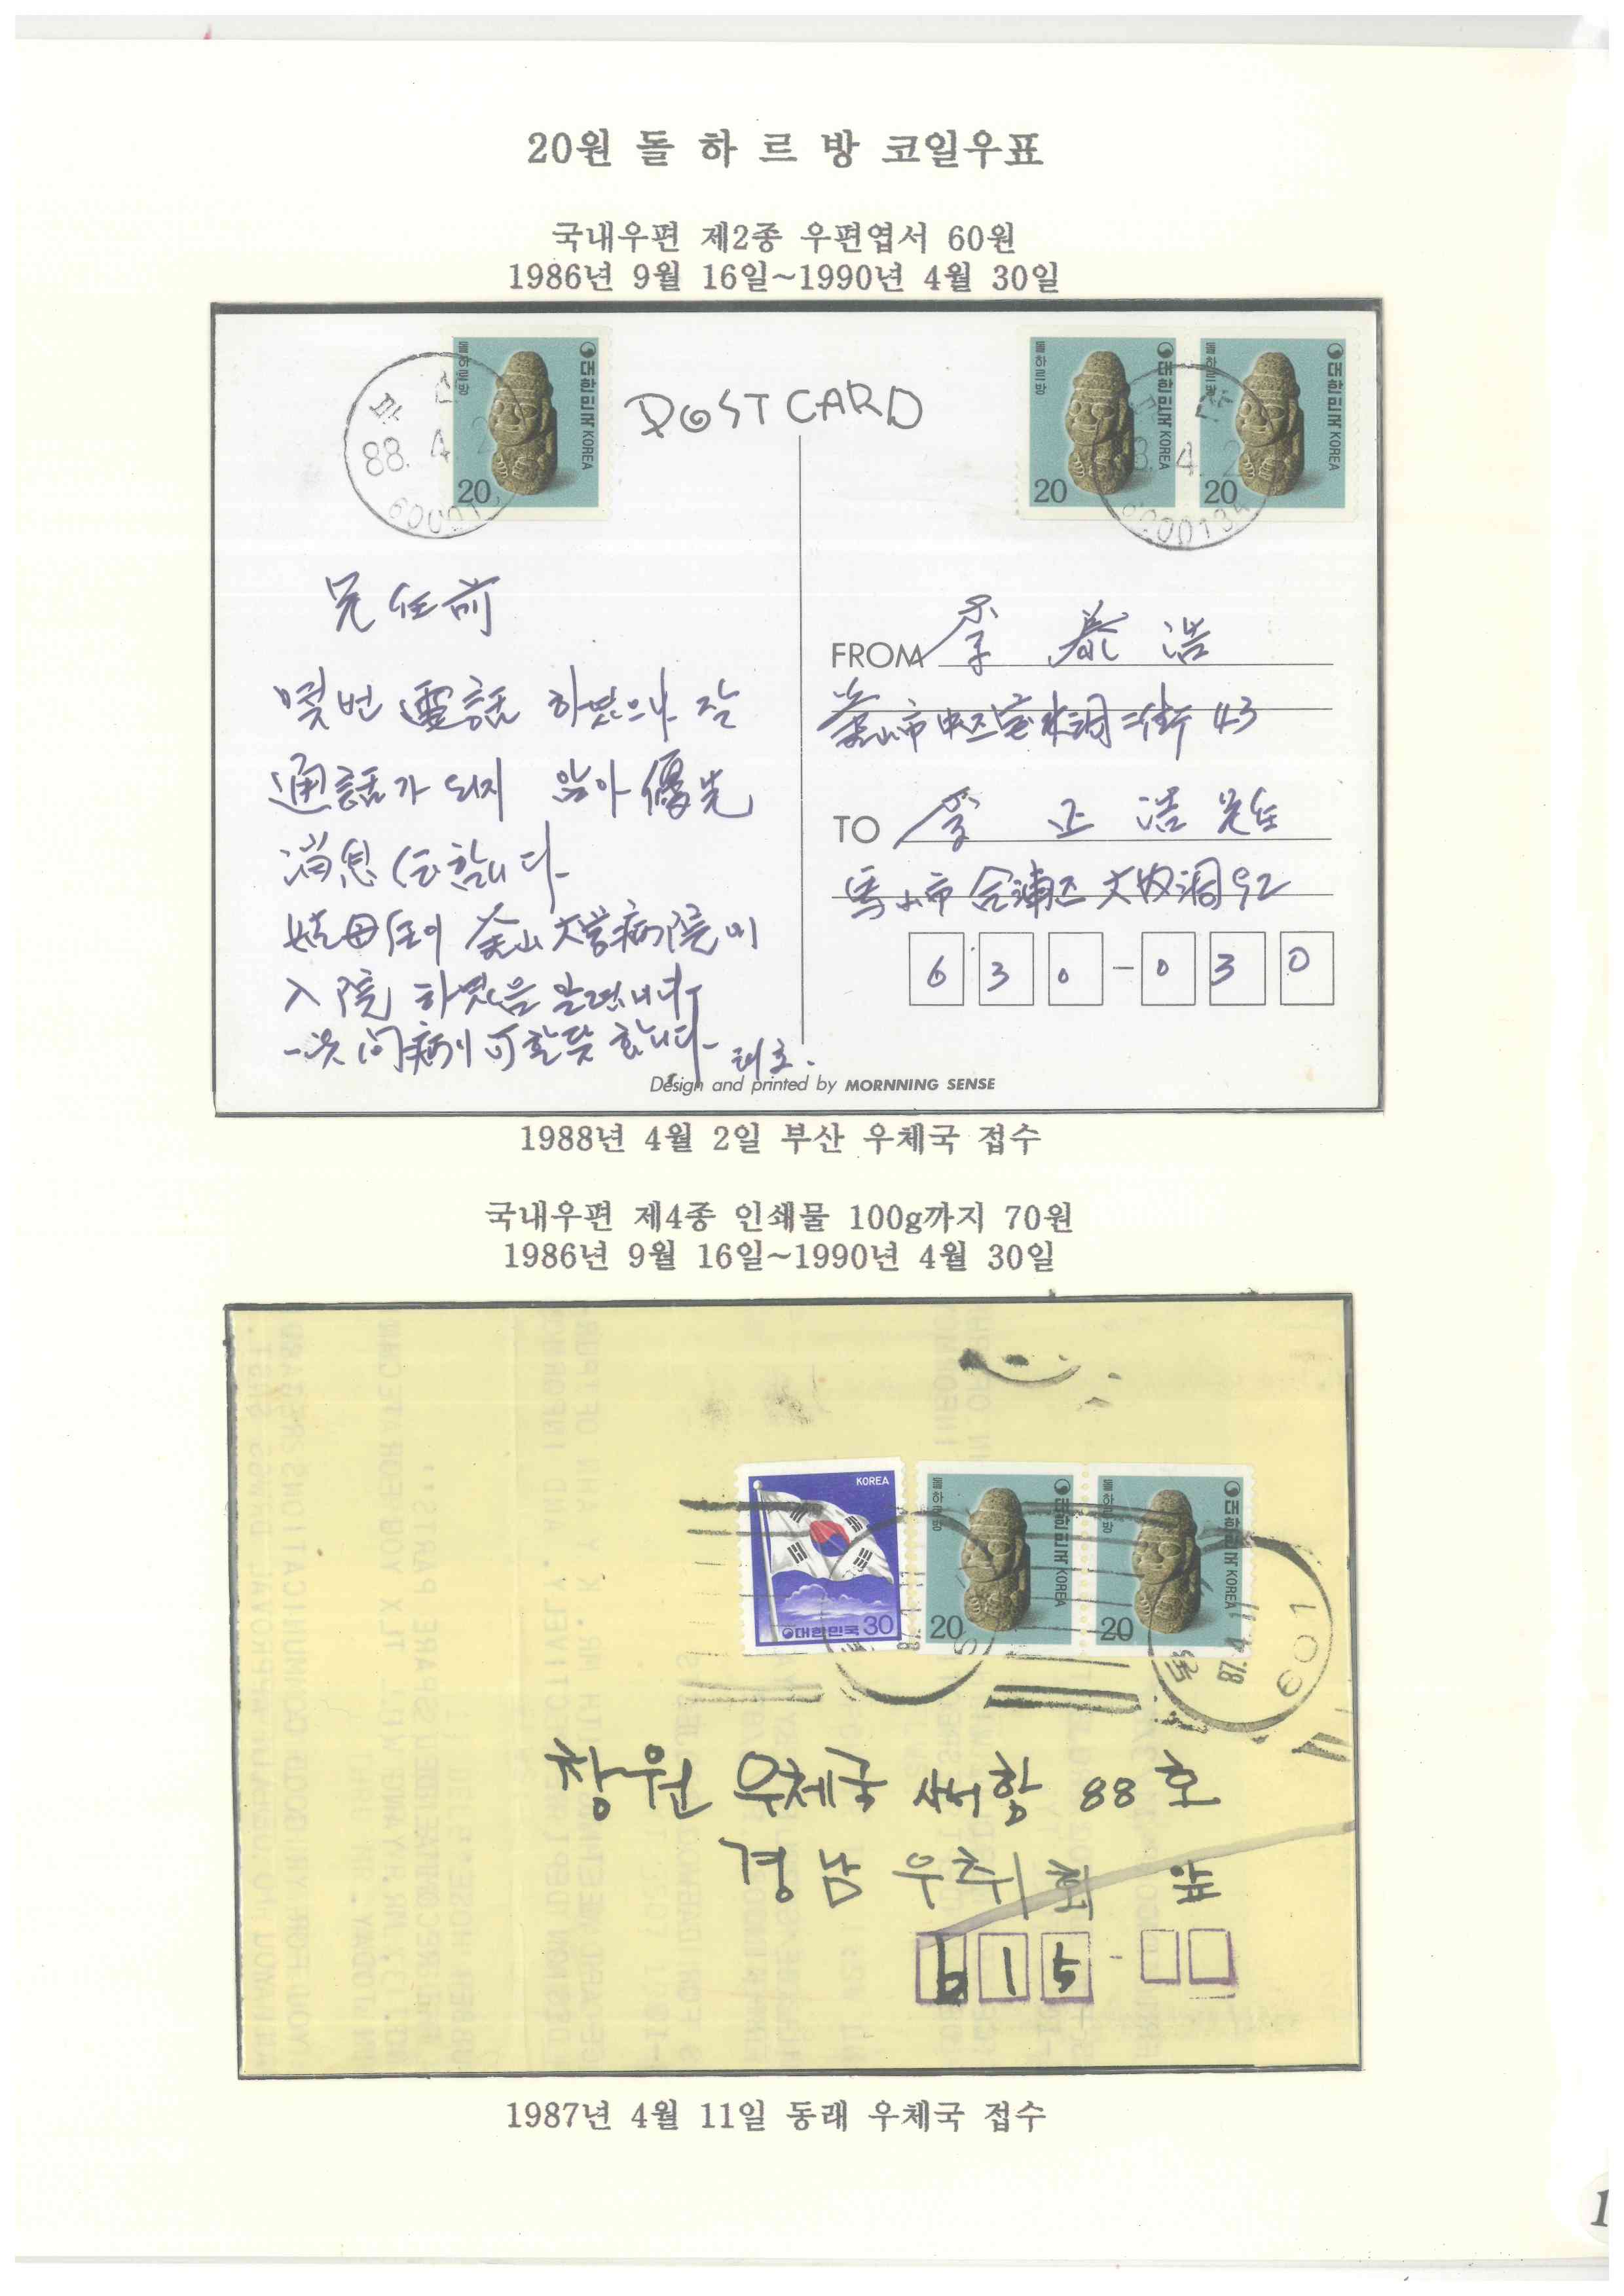 20원 돌 하 르 방 코일우표
국내우편 제2종 우편엽서 60원
1986년 9월 16일~1990년 4월 30일
돌하르방
대한민국 KOREA
20
부산
88. 4. 2
POST CARD
돌하르방
대한민국 KOREA
20
돌하르방
대한민국 KOREA
20
兄任前
몇번 電話 하였으나 잘
通話가 되지 않아 優先
消息 伝합니다
母任이 釜山大学病院에
入院 하였음을 알려드립니다
一次 問病이 可할듯 합니다 태호.
FROM 李 泰 浩
釜山市 中区 宝水洞 二街 43
TO 李 正 浩 兄任
馬山市 合浦区 92
6 3 0 - 0 3 0
Design and printed by MORNNING SENSE
1988년 4월 2일 부산 우체국 접수
국내우편 제4종 인쇄물 100g까지 70원
1986년 9월 16일~1990년 4월 30일
KOREA
대한민국 30
돌하르방
대한민국 KOREA
20
돌하르방
대한민국 KOREA
20
87. 4. 11
601
창원 우체국 사서함 88호
경남 우취회 앞
615-
1987년 4월 11일 동래 우체국 접수
1